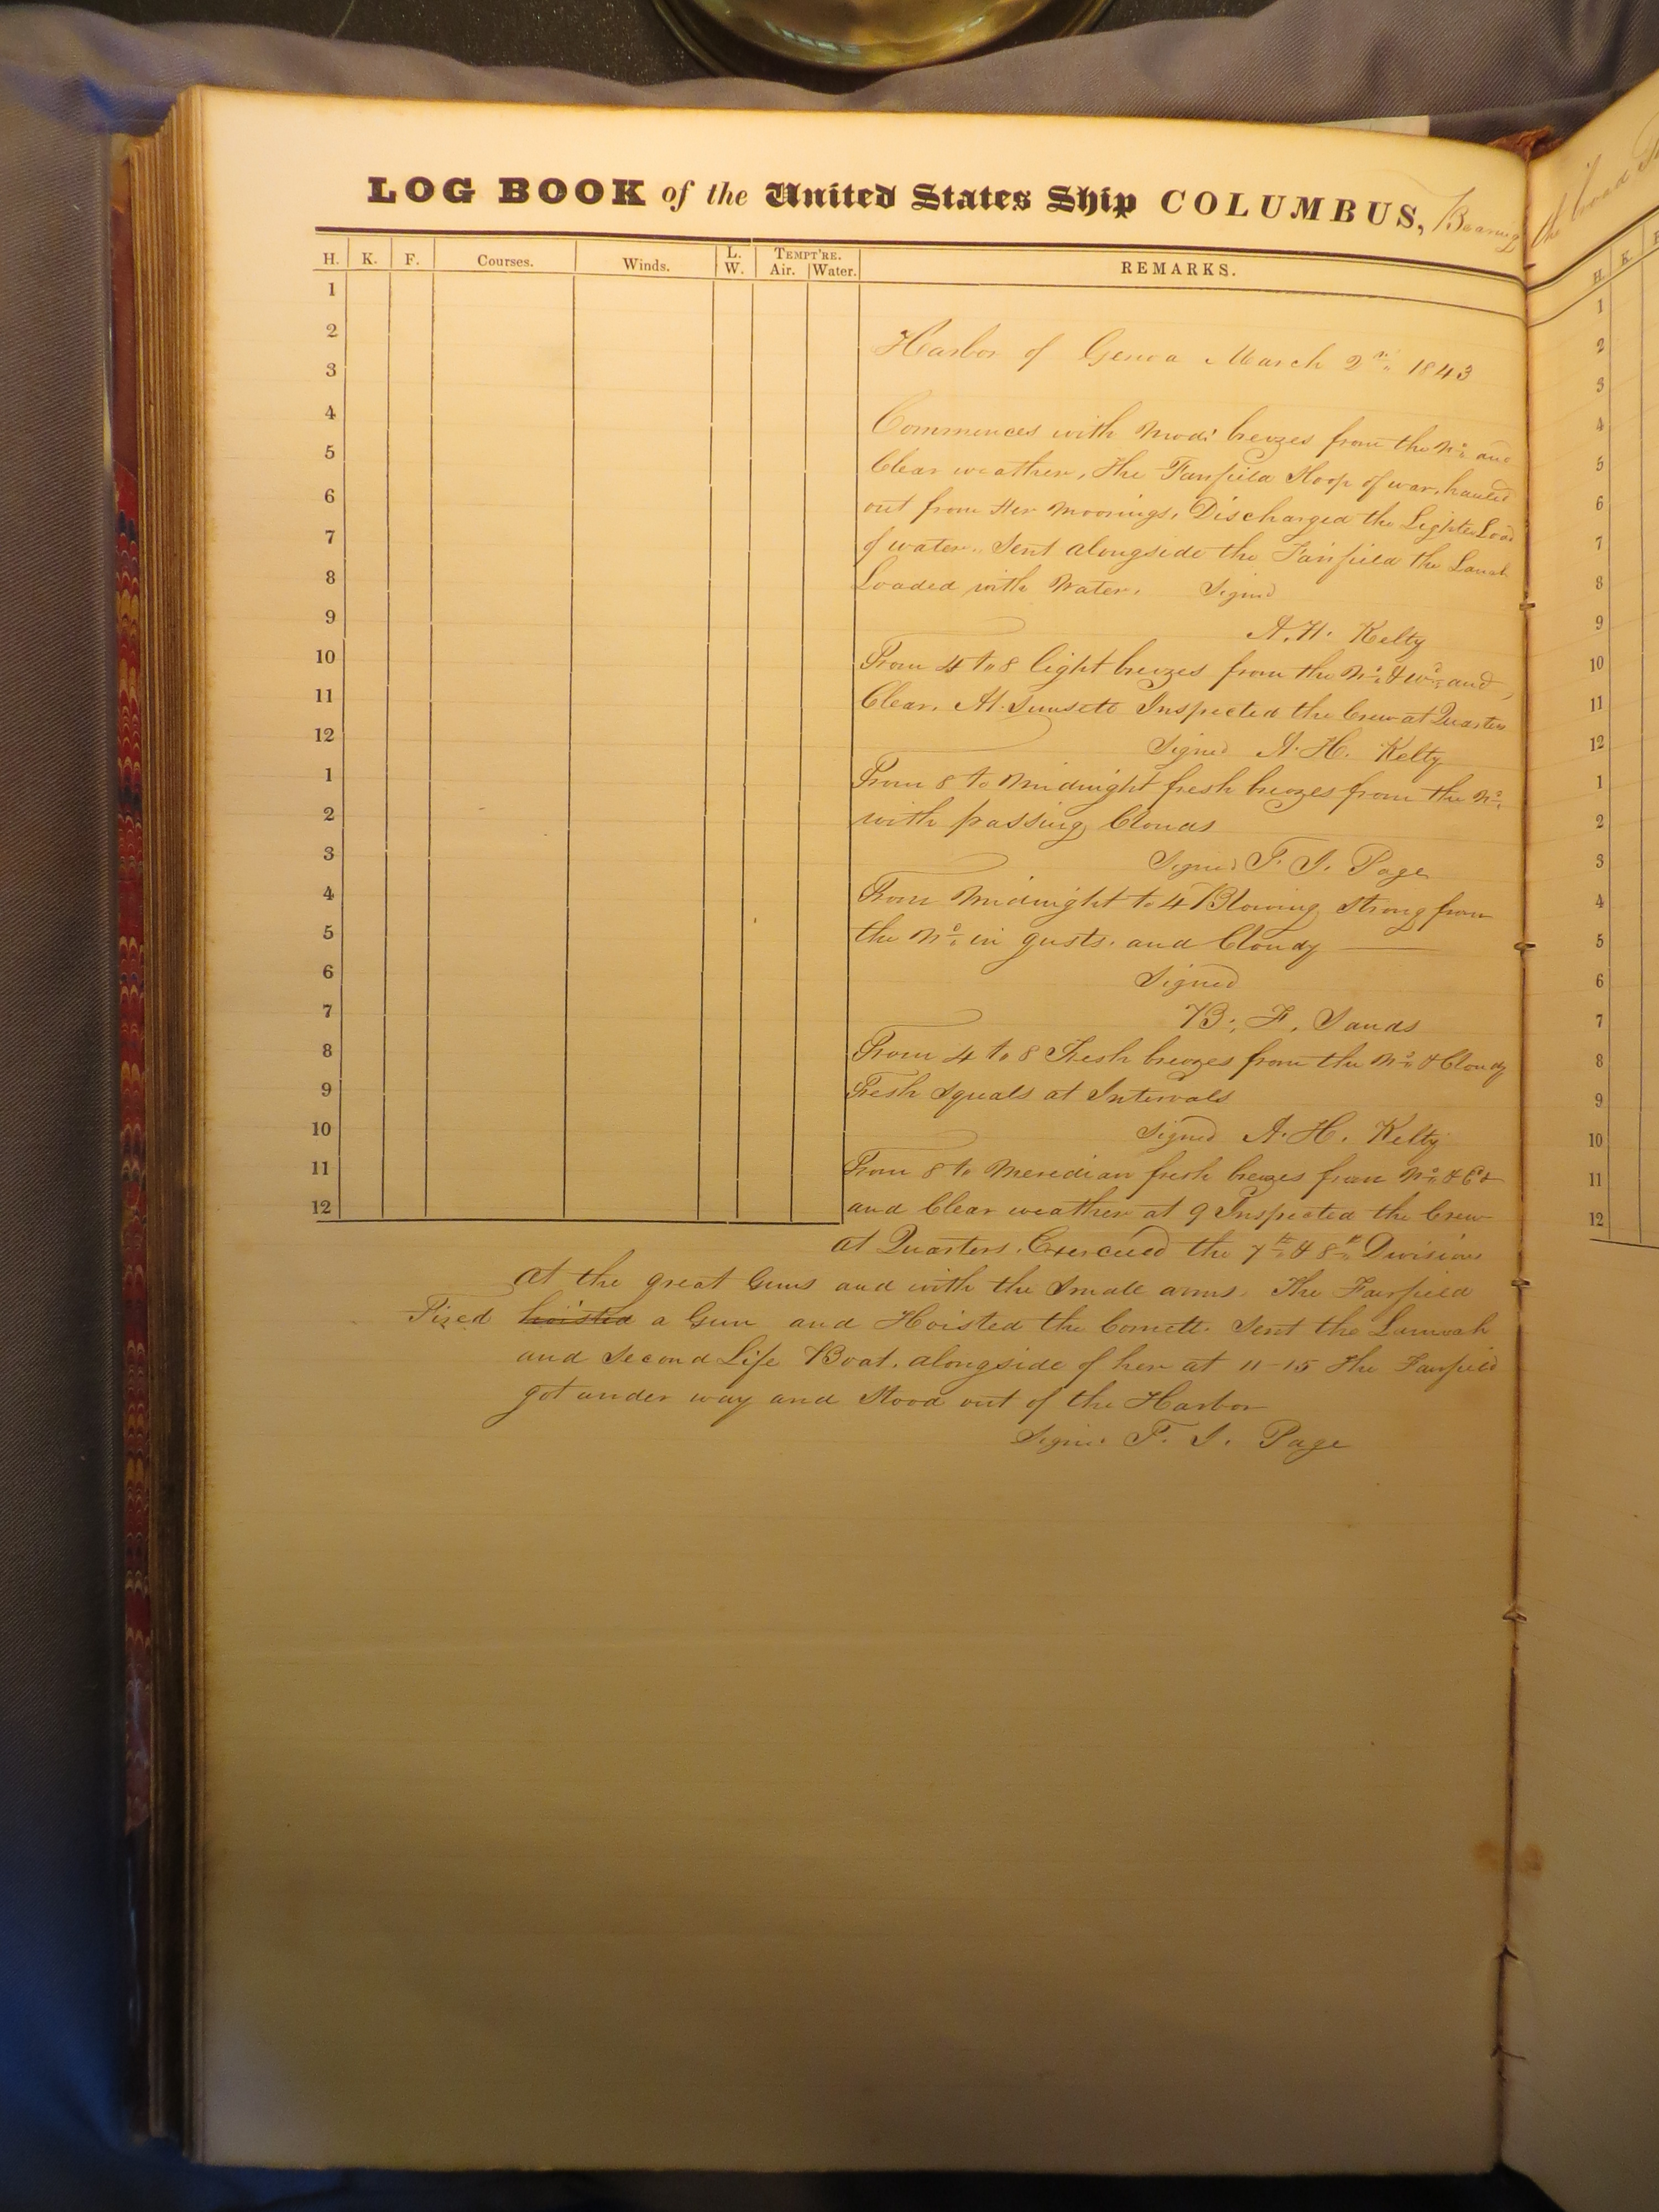 LOG BOOK of the United States Ship COLUMBUS, Bearing
the broad
H. K. F. Courses. Winds. L. W. TEMPT'RE. Air. Water. REMARKS.
1
2
Harbor of Genoa March 2nd 1843
3
4
Commences with Mod: breezes from the No: and
5
Clear weather, the Fairfield Sloop of war, hauled
6
out from Her moorings, Discharged the Lighter Load
7
of water. Sent alongside the Fairfield the Launch
8
Loaded with Water. Signed
9
A. H. Kelty
10
From 4 to 8 light breezes from the No: & Wd: and
11
Clear. At Sunsett Inspected the Crew at Quarters
12
Signed A. H. Kelty
1
From 8 to Midnight fresh breezes from the No:
2
with passing Clouds
3
Signed T. J. Page
4
From Midnight to 4 Blowing Strong from
5
the No: in gusts. and Cloudy
6
Signed
7
B. F. Sands
8
From 4 to 8 Fresh breezes from the No: & Cloudy
9
Fresh Squals at Intervals
10
Signed A. H. Kelty
11
From 8 to Meredian fresh breezes from No: & Ed
12
and Clear weather at 9 Inspected the Crew
at Quarters. Exercised the 7th & 8th Divisions
at the great Guns and with the Small arms. The Fairfield
Fired hoisted a Gun and Hoisted the Cornett. Sent the Launch
and Second Life Boat. alongside of her at 11-15 the Fairfield
got under way and Stood out of the Harbor
Signed T. J. Page
H. K.
1
2
3
4
5
6
7
8
9
10
11
12
1
2
3
4
5
6
7
8
9
10
11
12